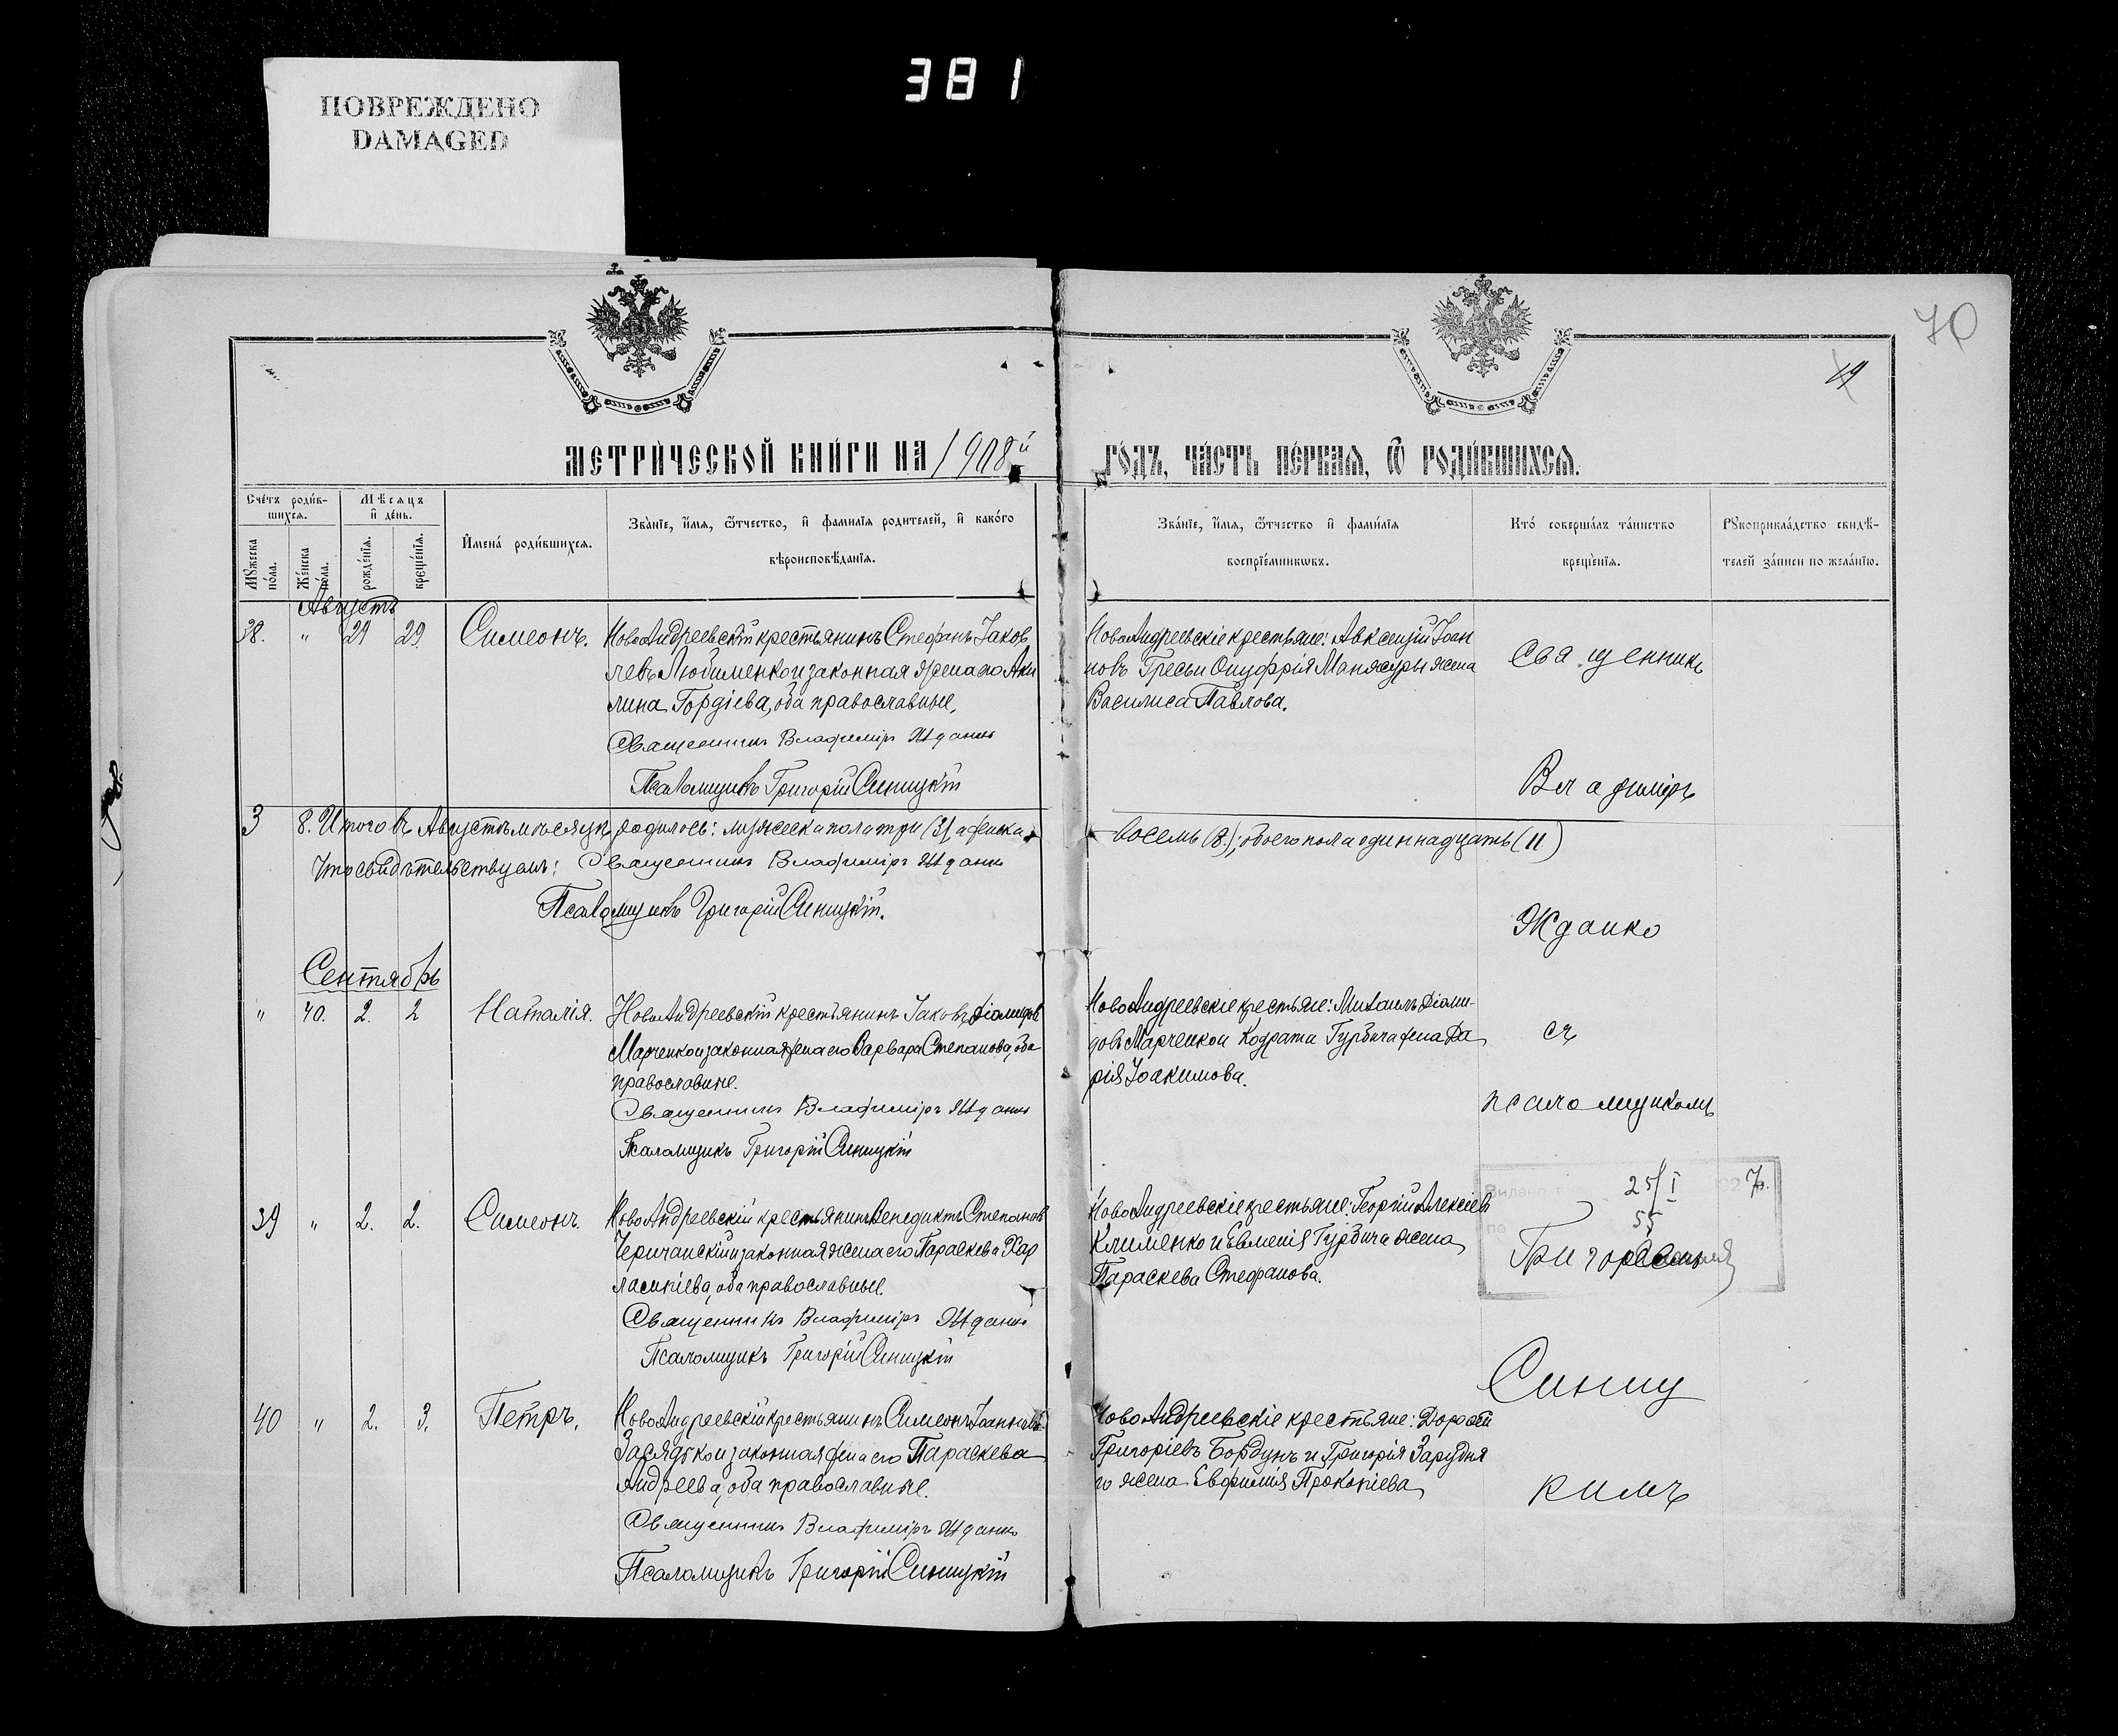 381
ПОВРЕЖДЕНО
DAMAGED
70
МЕТРИЧЕСКОЙ КНИГИ НА 1908й
ГОДЪ, ЧАСТЬ ПЕРВАЯ, Ѿ РОДИВШИХСЯ.
Счетъ родив-
шихся.
Мѣсяцъ
и день.
Мꙋжеска
пола.
Женска
пола.
рожденїя.
крещенїя.
Имена родившихся.
Званїе, имя, ѿтчество, и фамилїя родителей, и какого
вѣроисповѣданїя.
Званїе, имя, ѿтчество и фамилїя
воспрїемникѡвъ.
Кто совершалъ таинство
крещенїя.
Рꙋкоприкладство свидѣ-
телей записи по желанїю.
Августъ
38. " 29 29 Симеонъ.
НовоАндреевскій крестьянинъ Стефанъ Іаков
левъ Любименко и законная жена его Аки
лина Гордіева, оба православные.
Священникъ Владиміръ Жданко
Псаломщикъ Григорій Синицкій
НовоАндреевскіе крестьяне: Авксентій Іоан
новъ и Онуфрія жена
Василиса Павлова.
Священникъ
Владиміръ
3 8. Итого въ Августѣ мѣсяцѣ родилось: мужеска пола три (3), а женска
восемь (8); обоего пола одиннадцать (11)
Что свидѣтельствуемъ: Священникъ Владиміръ Жданко
Псаломщикъ Григорій Синицкій.
Жданко
Сентябрь
" 40. 2. 2 Наталія.
НовоАндреевскій крестьянинъ Іаковъ Діомидовъ
Марченко и законная жена его Варвара Степанова, оба
православные.
Священникъ Владиміръ Жданко
Псаломщикъ Григорій Синицкій
НовоАндреевскіе крестьяне: Михаилъ Діоми-
довъ Марченко и Кодрата Гурбича жена Да
рія Іоакимова.
съ
псаломщикомъ
39 " 2. 2. Симеонъ
НовоАндреевскій крестьянинъ Венедиктъ Степановъ
и законная жена его Параскева Хар
лампіева, оба православные.
Священникъ Владиміръ Жданко
Псаломщикъ Григорій Синицкій
НовоАндреевскіе крестьяне: Георгій Алексіевъ
Клименко и Евменія Гурбича жена
Параскева Стефанова.
25/I
55
Григоріемъ
Синиц
40 " 2. 3. Петръ.
НовоАндреевскій крестьянинъ Симеонъ Іоанновъ
Засядько и законная жена его Параскева
Андреева, оба православные.
Священникъ Владиміръ Жданко
Псаломщикъ Григорій Синицкій
НовоАндреевскіе крестьяне: Дороѳей
Григоріевъ Бордунъ и Григорія Зарудня
го жена Евфимія Прокопіева
кимъ